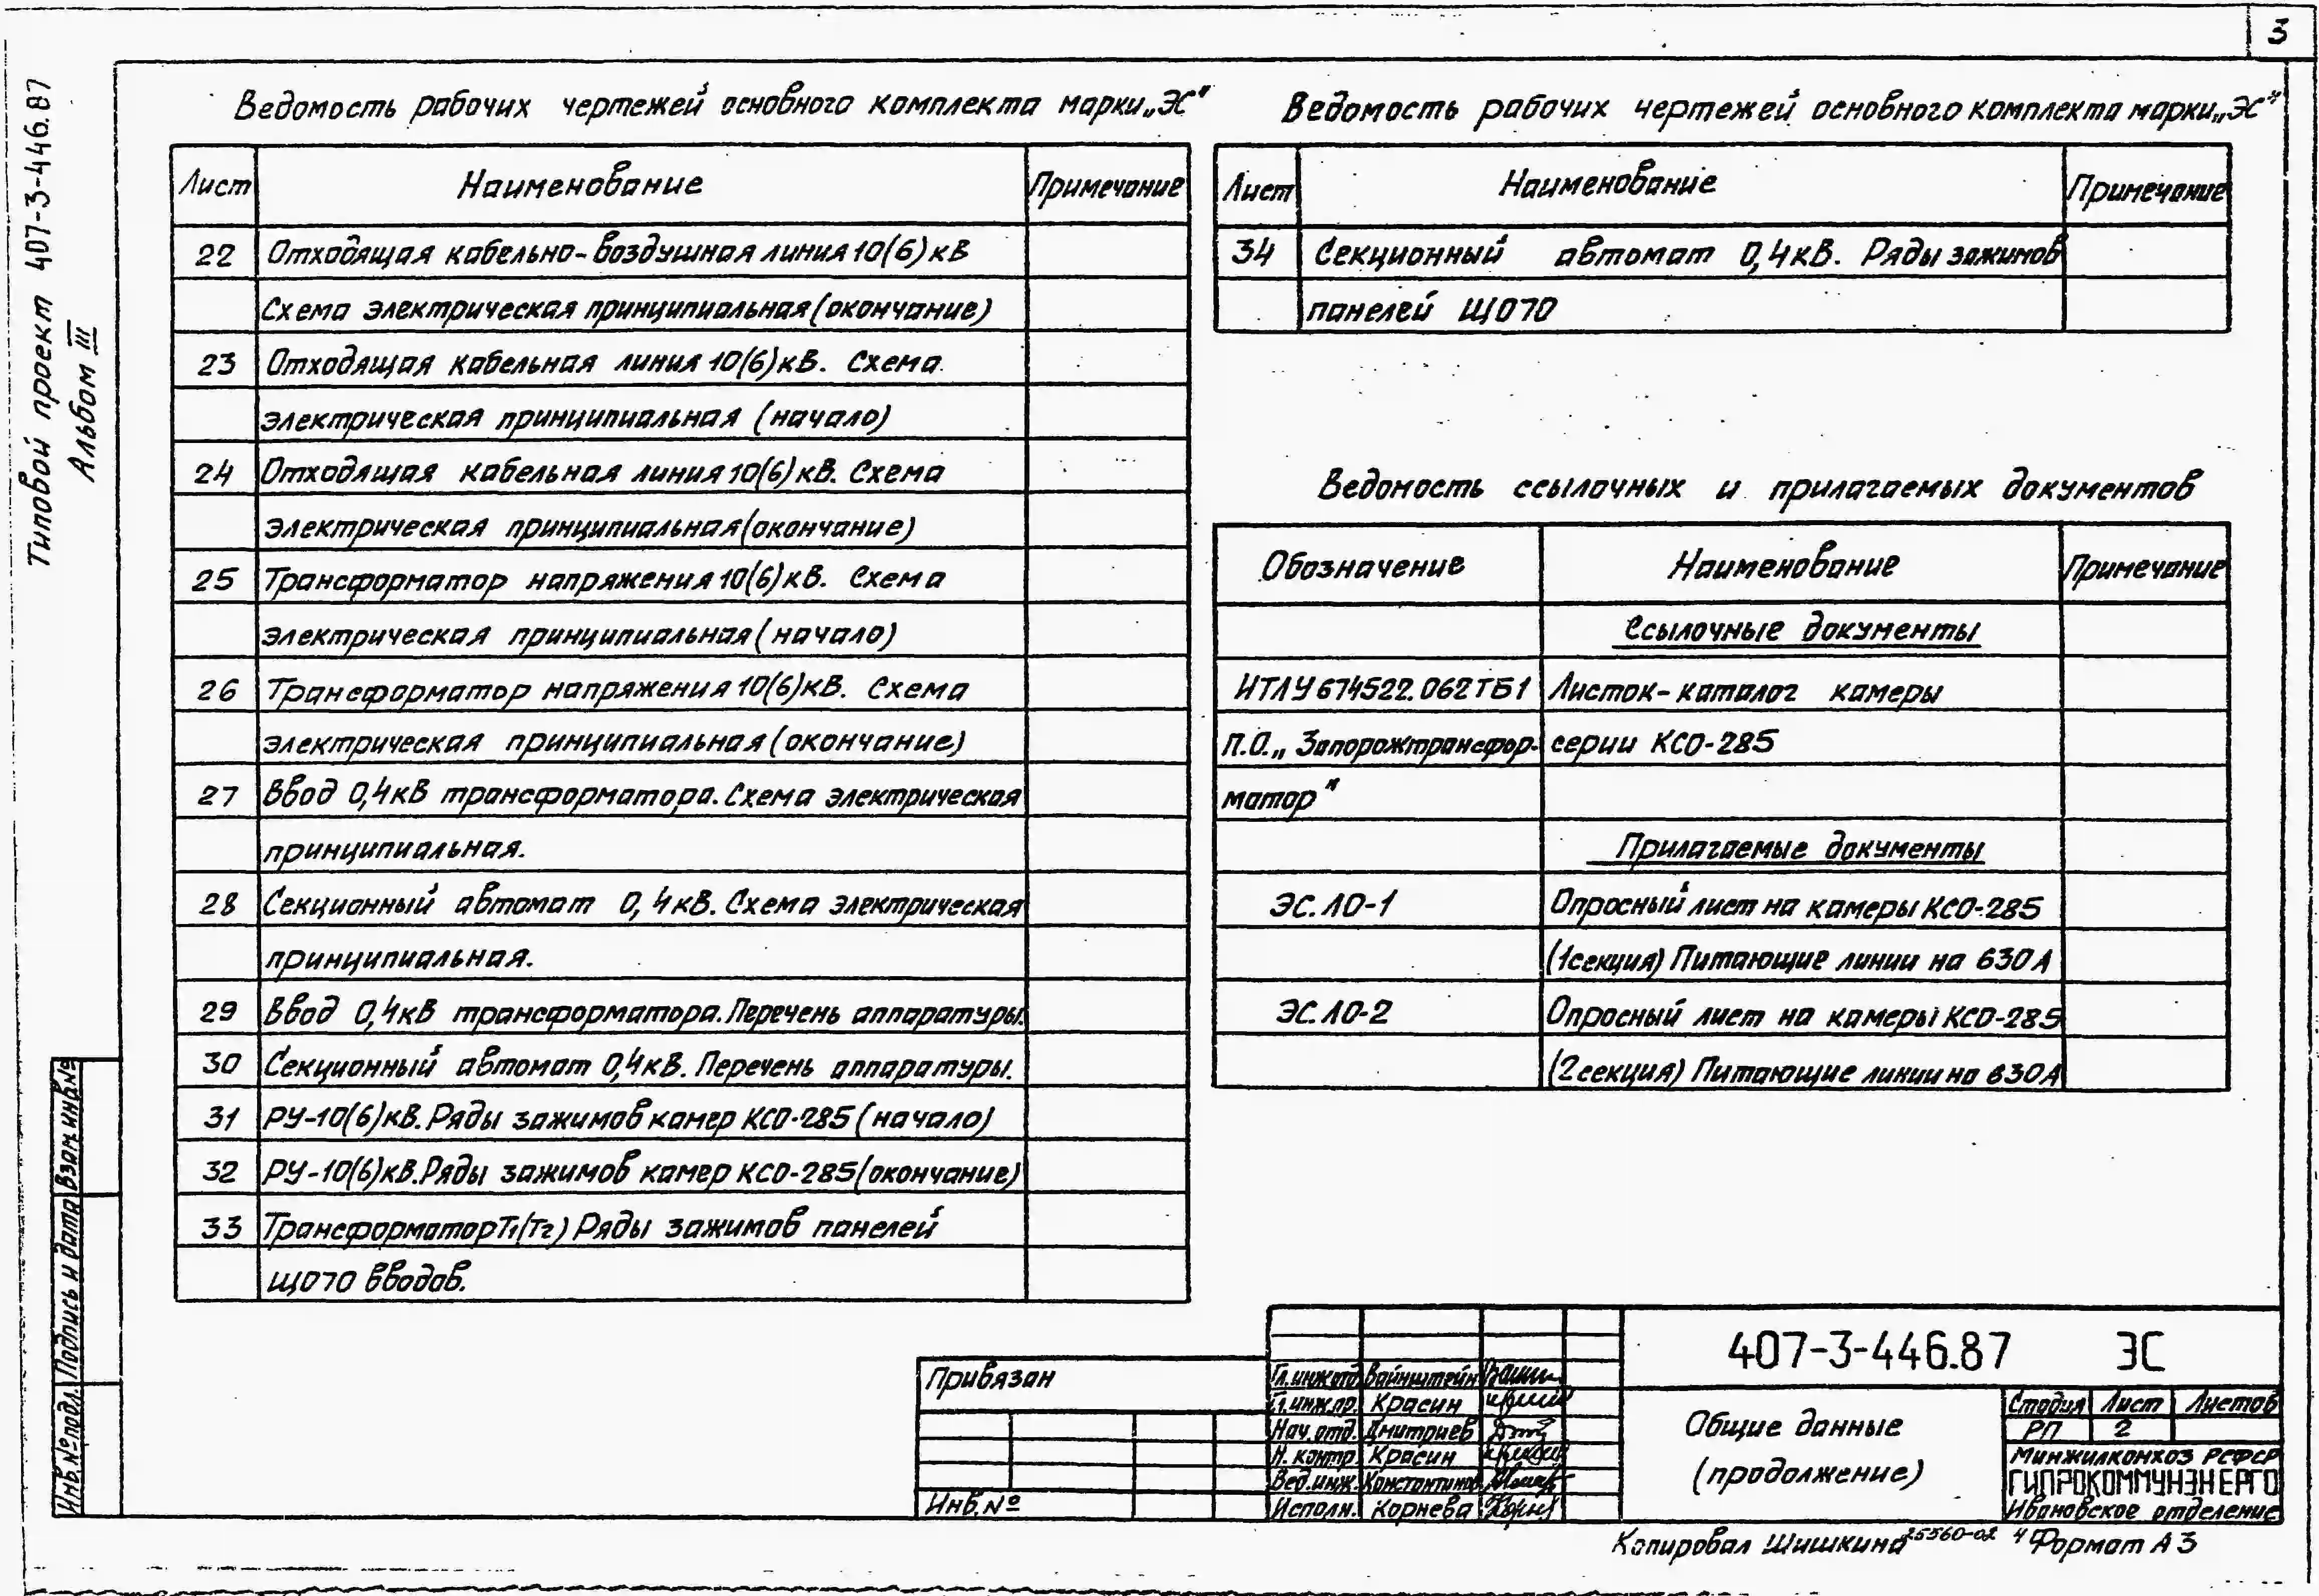 3
Типовой проект 407-3-446.87
Альбом III
Ведомость рабочих чертежей основного комплекта марки „ЭС"
Лист Наименование Примечание
22 Отходящая кабельно-воздушная линия 10(6)кВ
Схема электрическая принципиальная (окончание)
23 Отходящая кабельная линия 10(6)кВ. Схема
электрическая принципиальная (начало)
24 Отходящая кабельная линия 10(6)кВ. Схема
электрическая принципиальная (окончание)
25 Трансформатор напряжения 10(6)кВ. Схема
электрическая принципиальная (начало)
26 Трансформатор напряжения 10(6)кВ. Схема
электрическая принципиальная (окончание)
27 Ввод 0,4кВ трансформатора. Схема электрическая
принципиальная.
28 Секционный автомат 0,4кВ. Схема электрическая
принципиальная.
29 Ввод 0,4кВ трансформатора. Перечень аппаратуры.
30 Секционный автомат 0,4кВ. Перечень аппаратуры.
31 РУ-10(6)кВ. Ряды зажимов камер КСО-285 (начало)
32 РУ-10(6)кВ. Ряды зажимов камер КСО-285 (окончание)
33 Трансформатор Т1(Т2) Ряды зажимов панелей
ЩО70 вводов.
Ведомость рабочих чертежей основного комплекта марки „ЭС"
Лист Наименование Примечание
34 Секционный автомат 0,4кВ. Ряды зажимов
панелей ЩО70
Ведомость ссылочных и прилагаемых документов
Обозначение Наименование Примечание
Ссылочные документы
ИТЛУ 674522.062ТБ1 Листок-каталог камеры
П.О. „Запорожтрансфор- серии КСО-285
матор"
Прилагаемые документы
ЭС.ЛО-1 Опросный лист на камеры КСО-285
(1секция) Питающие линии на 630А
ЭС.ЛО-2 Опросный лист на камеры КСО-285
(2секция) Питающие линии на 630А
Взам.инв.№
Подпись и дата
Инв.№подл.
Привязан
Инв.№
Гл.инж.отд. Вайнштейн
Гл.инж.пр. Красин
Нач.отд. Дмитриев
Н.контр. Красин
Вед.инж. Константинов
Исполн. Корнева
407-3-446.87 ЭС
Общие данные
(продолжение)
Стадия Лист Листов
РП 2
Минжилкомхоз РСФСР
ГИПРОКОММУНЭНЕРГО
Ивановское отделение
Копировал Шишкина 25560-02 4 Формат А3